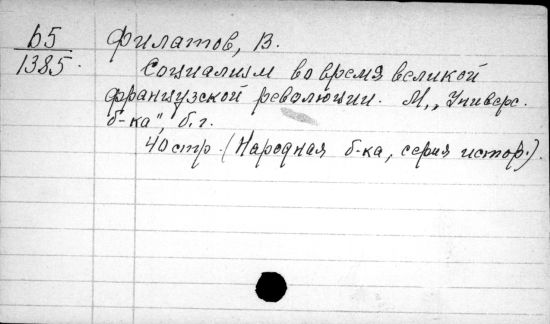 Б5 Филатов, В.
1385.
Социализм во время великой
французской революции. М., „Универс.
б-ка", б. г.
40 стр. (Народная б-ка, серия истор.).